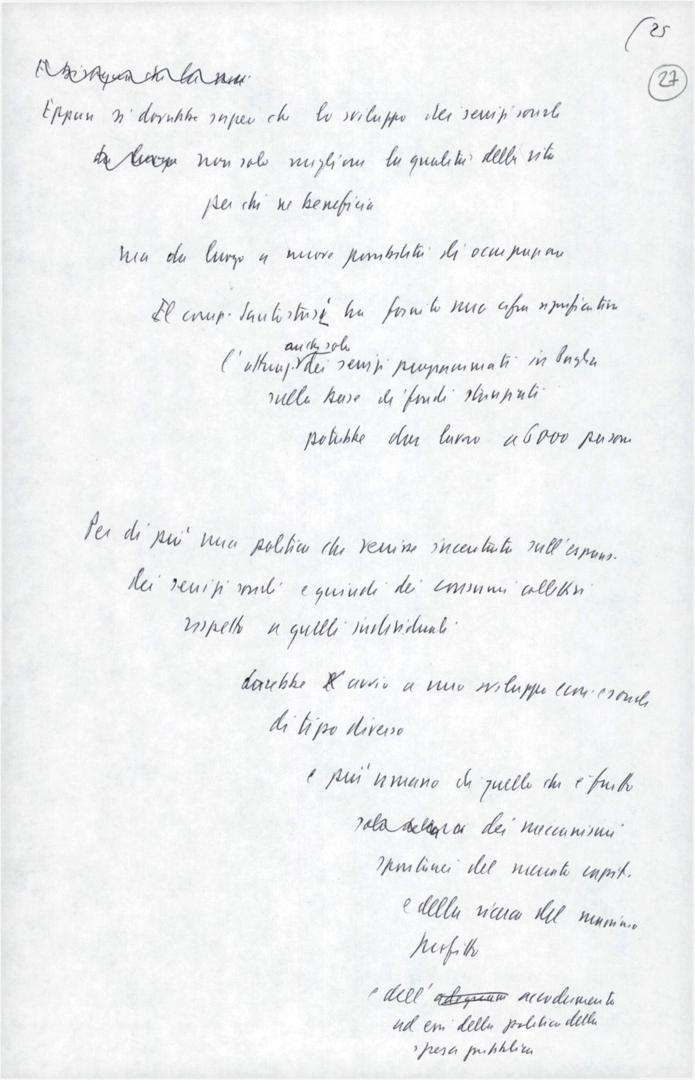 25
27
Eppure si dovrebbe sapere che lo sviluppo dei servizi sociali
non solo migliora la qualità della vita
per chi ne beneficia
ma da luogo a nuove possibilità di occupazione
Il comp. ha fornito una cifra significativa
anche solo
l'attuaz. dei servizi programmati in Puglia
sulla base di fondi stanziati
potrebbe dar lavoro a 6000 persone
Per di più una politica che venisse incentrata sull'espans.
dei servizi sociali e quindi dei consumi collettivi
rispetto a quelli individuali
darebbe avvio a uno sviluppo econ. e sociale
di tipo diverso
e più umano di quello che è frutto
solo dei meccanismi
spontanei del mercato capit.
e della ricerca del massimo
profitto
e dell' accodamento
ad essi della politica della
spesa pubblica